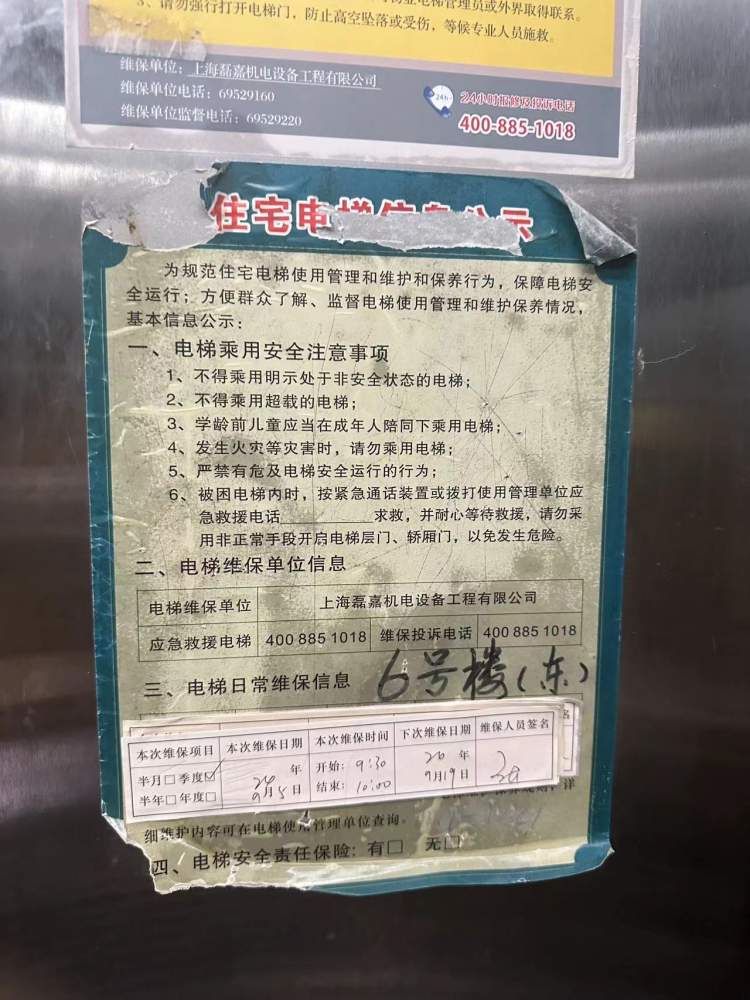 3、请勿强行打开电梯门，防止高空坠落或受伤，等候专业人员施救。
电梯管理员或外界取得联系。
维保单位：上海磊嘉机电设备工程有限公司
维保单位电话：69529160
维保单位监督电话：69529220
24h
24小时报修及投诉电话
400-885-1018
住宅电梯信息公示
为规范住宅电梯使用管理和维护和保养行为，保障电梯安
全运行；方便群众了解、监督电梯使用管理和维护保养情况，
基本信息公示：
一、电梯乘用安全注意事项
1、不得乘用明示处于非安全状态的电梯；
2、不得乘用超载的电梯；
3、学龄前儿童应当在成年人陪同下乘用电梯；
4、发生火灾等灾害时，请勿乘用电梯；
5、严禁有危及电梯安全运行的行为；
6、被困电梯内时，按紧急通话装置或拨打使用管理单位应
急救援电话________求救，并耐心等待救援，请勿采
用非正常手段开启电梯层门、轿厢门，以免发生危险。
二、电梯维保单位信息
电梯维保单位 上海磊嘉机电设备工程有限公司
应急救援电梯 400 885 1018 维保投诉电话 400 885 1018
三、电梯日常维保信息 6号楼(东)
本次维保项目 本次维保日期 本次维保时间 下次维保日期 维保人员签名
半月□ 季度☑ 年 开始：9:30 年
半年□ 年度□ 9月5日 结束：10:00 9月19日
细维护内容可在电梯使用管理单位查询。
四、电梯安全责任保险：有□ 无□